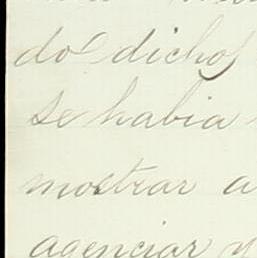 do dicho
se habia
mostrar a
agenciar y